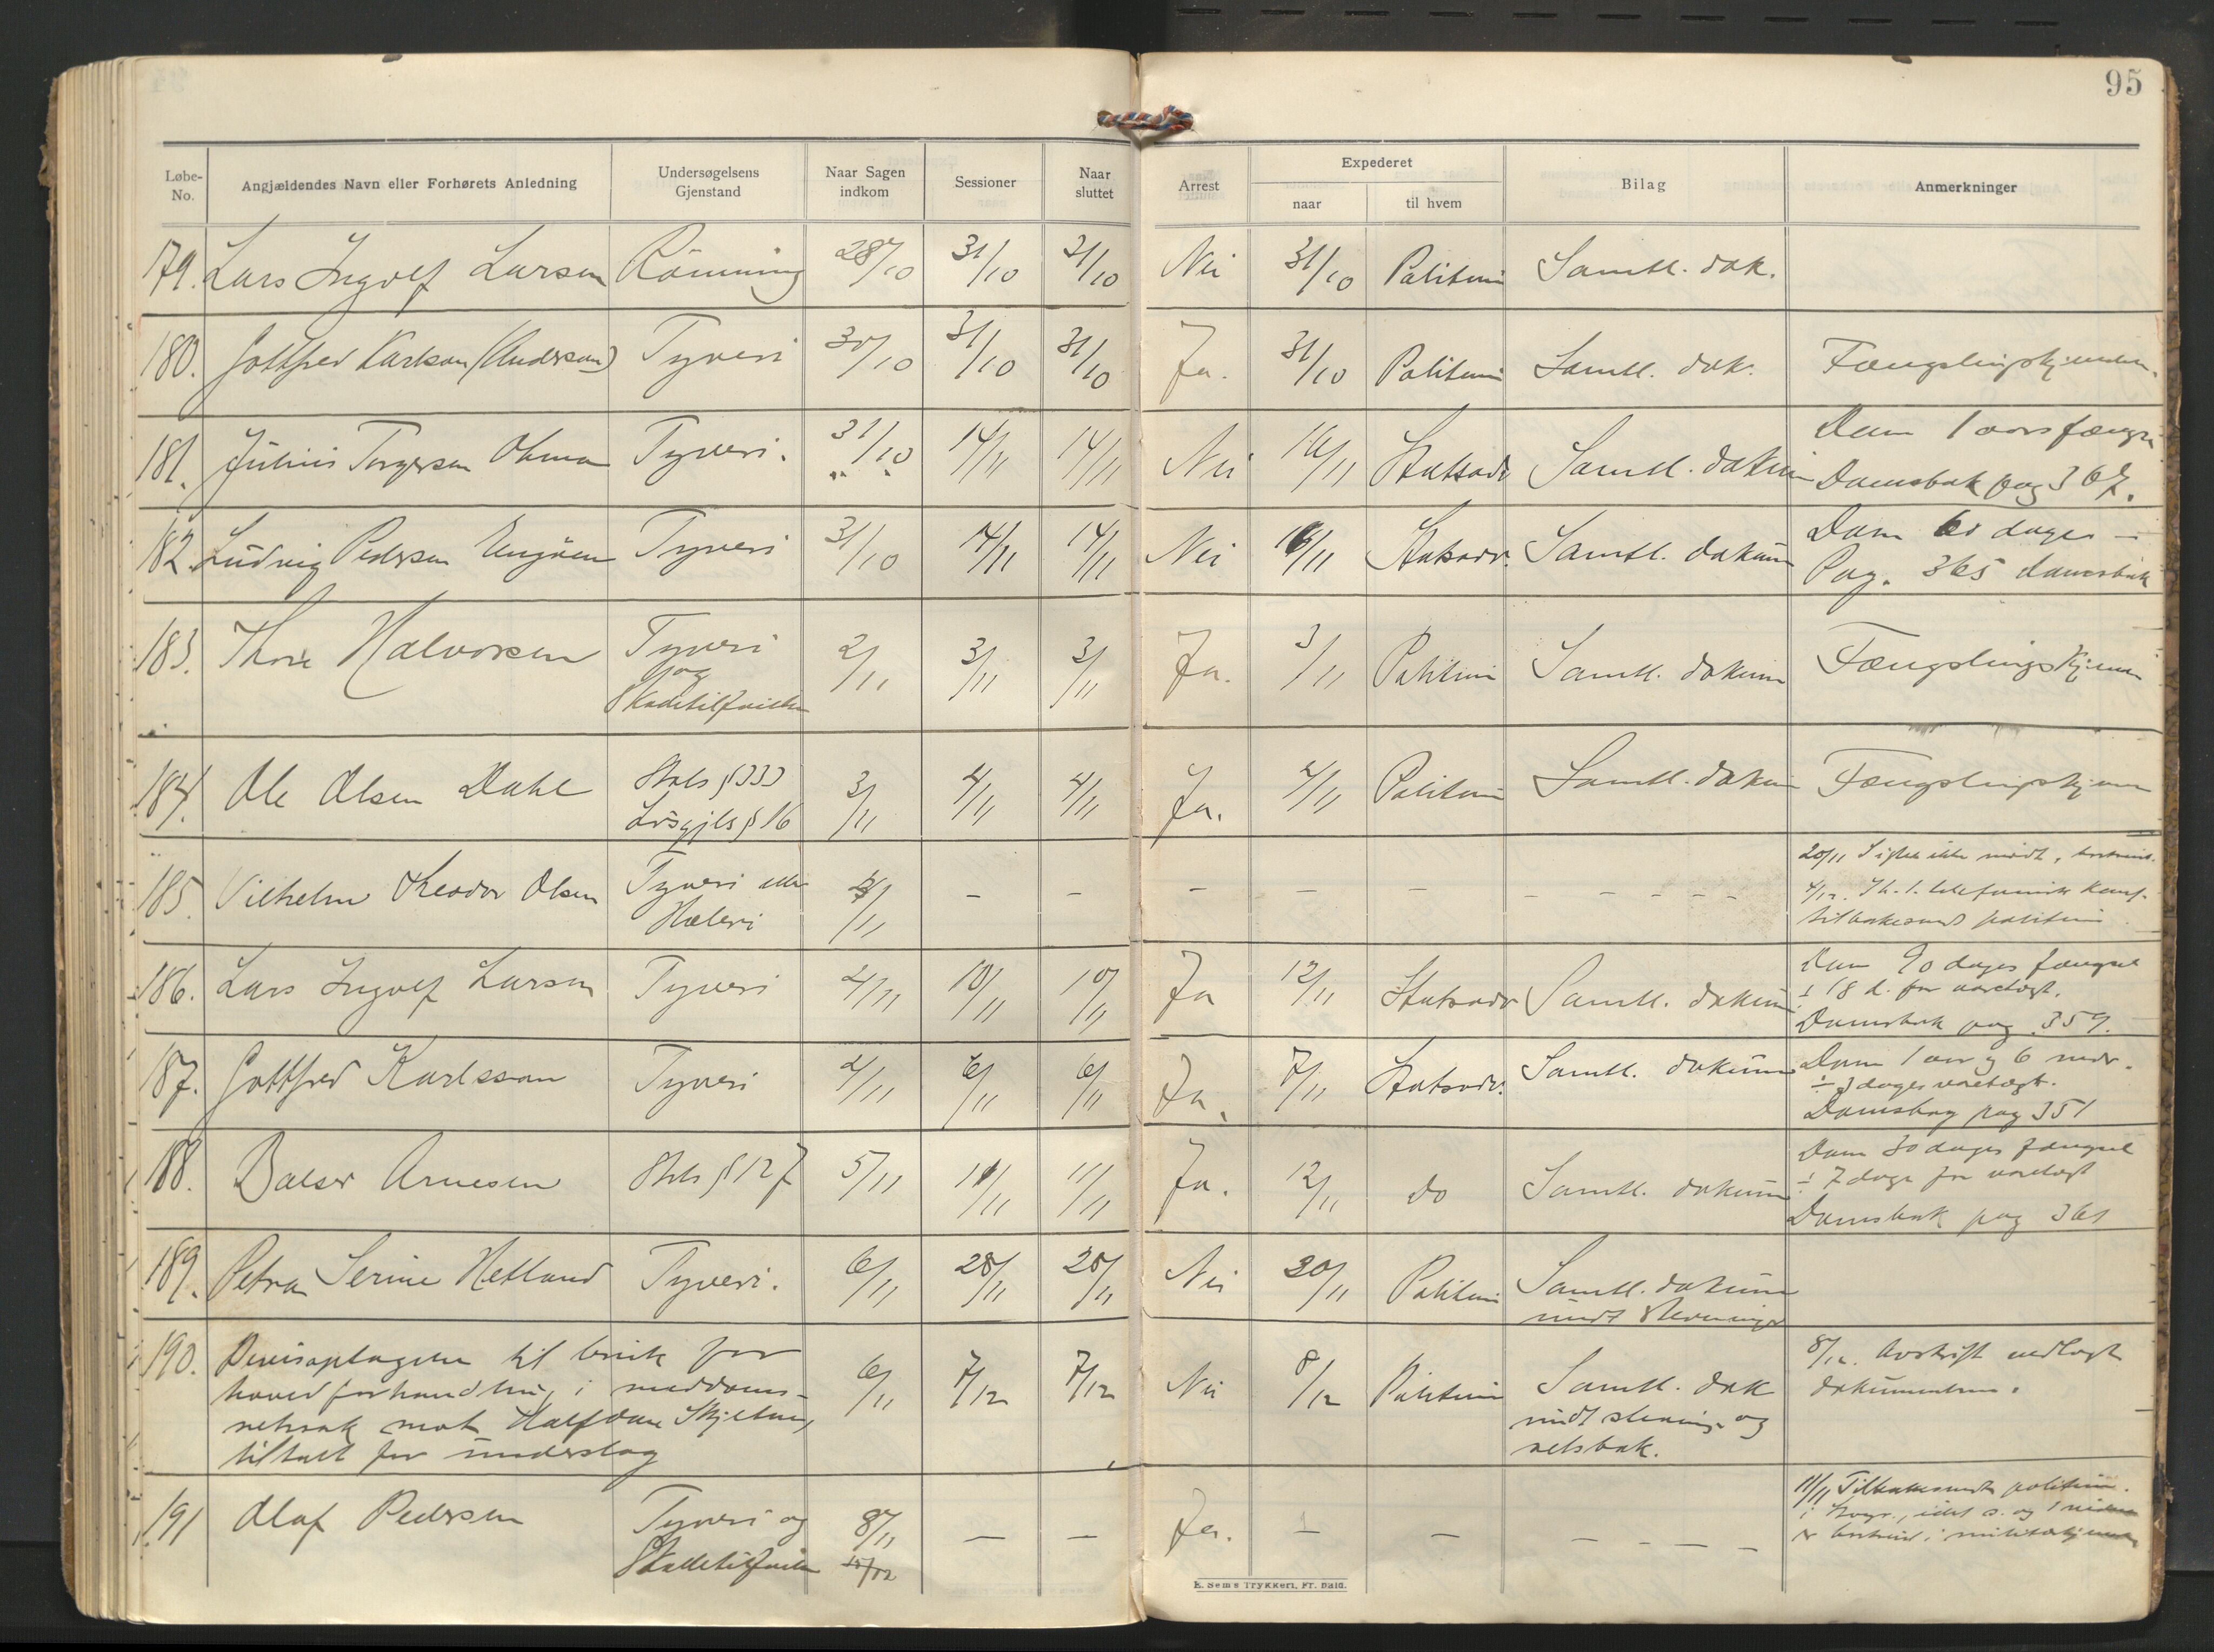 95
Løbe-No.
Angjældendes Navn eller Forhørets Anledning
Undersøgelsens Gjenstand
Naar Sagen indkom
Sessioner
Naar sluttet
Arrest
Expederet
naar
til hvem
Bilag
Anmerkninger
179. Lars Ingolf Larsen Römning 28/10 31/10 31/10 Nei 31/10 Politiet Samtl. dok.
180. Gottfred Karlson (Anderson) Tyveri 30/10 31/10 31/10 Ja. 31/10 Politiet Samtl. dok. Fængslingskjendelse.
181. Julius Torgersen Tyveri. 31/10 14/11 14/11 Nei 16/11 Statsadv Samtl. dokum Dom 1 aars fængs
Domsbok pag 367.
182. Ludvig Pedersen Tyveri 31/10 14/11 14/11 Nei 16/11 Statsadv. Samtl. dokum Dom 60 dager
Pag. 365 domsbok
183. Thore Halvorsen Tyveri 2/11 3/11 3/11 Ja. 3/11 Politiet Samtl. dokum Fængslingskjen
og
Skadetilføielse
184. Ole Olsen Dahl Strls § 333 3/11 4/11 4/11 Ja. 4/11 Politiet Samtl. dokum Fængslingskjen
Løsgjls § 16
185. Vilhelm Theodor Olsen Tyveri eller 4/11 – – – – – – – – – 20/11 Sigtede ikke mødt, bortreist.
Hæleri 4/12. telefonisk konf.
tilbakesendt politiet
186. Lars Ingolf Larsen Tyveri 4/11 10/11 10/11 Ja 12/11 Statsadv Samtl. dokum Dom 90 dages fængsel
÷ 18 d. for varetægt.
Domsbok pag 359.
187. Gottfred Karlsson Tyveri 4/11 6/11 6/11 Ja. 7/11 Statsadv. Samtl. dokum Dom 1 aar og 6 mdr.
÷ 3 dages varetægt.
Domsbog pag 351
188. Balser Arnesen Strls § 127 5/11 11/11 11/11 Ja. 12/11 do Samtl. dokum Dom 30 dages fængsel
÷ 7 dage for varetægt
Domsbok pag 361
189. Petra Serine Hetland Tyveri. 6/11 28/11 28/11 Nei 30/11 Politiet Samtl. dokum
undt stevninger
190. Bevisoptagelse til bruk for 6/11 7/12 7/12 Nei 8/12 Politiet Samtl. dok 8/12. Avskrift vedlagt
hovedforhandling i meddoms- undt stevning og dokumenterne.
retssak mot Halfdan retsbok.
tiltalt for underslag
191 Olaf Pedersen Tyveri og 8/11 – – Ja. – – – – – – 11/11 Tilbakesendt politiet.
Skadetilføielse 15/12
E. Sem's Trykkeri, Fr. hald.